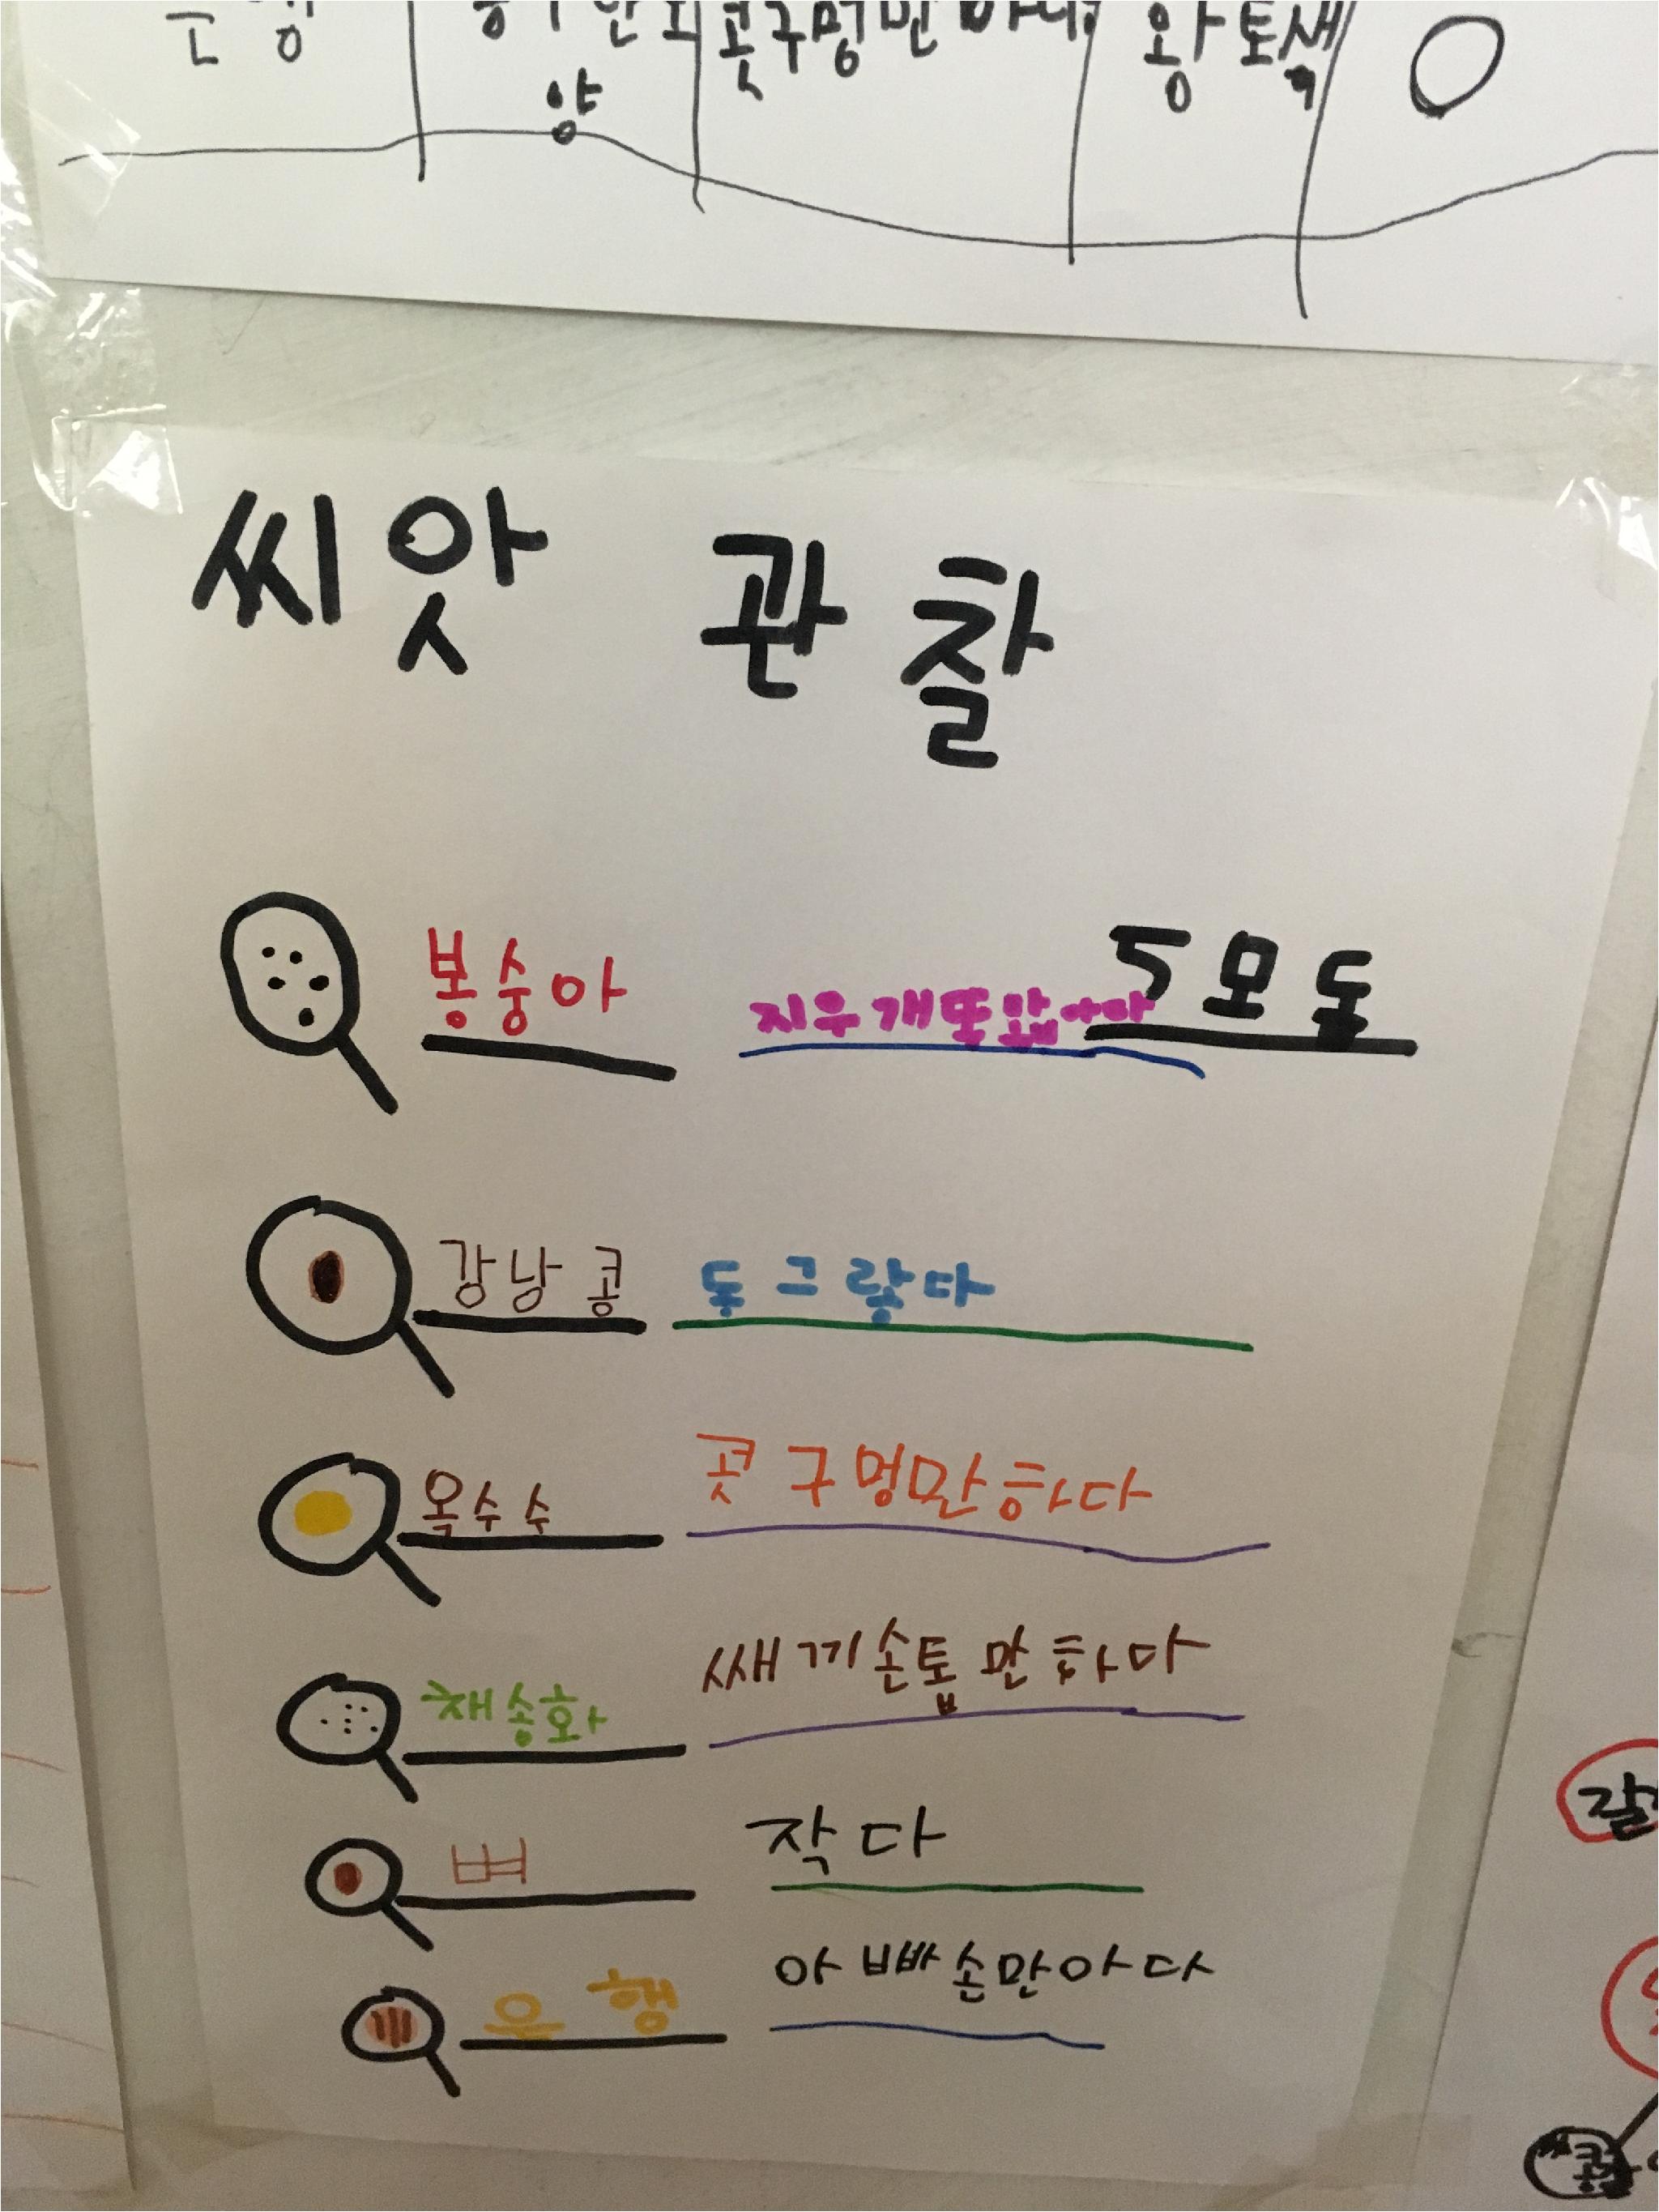 콧구멍만
양
왕 토색
씨앗 관찰
봉숭아 지우개똥 5모둠
강낭콩 동그랗다
옥수수 콧구멍만하다
채송화 쌔끼손톱만하다
벼 작다
은행 아빠손만아다